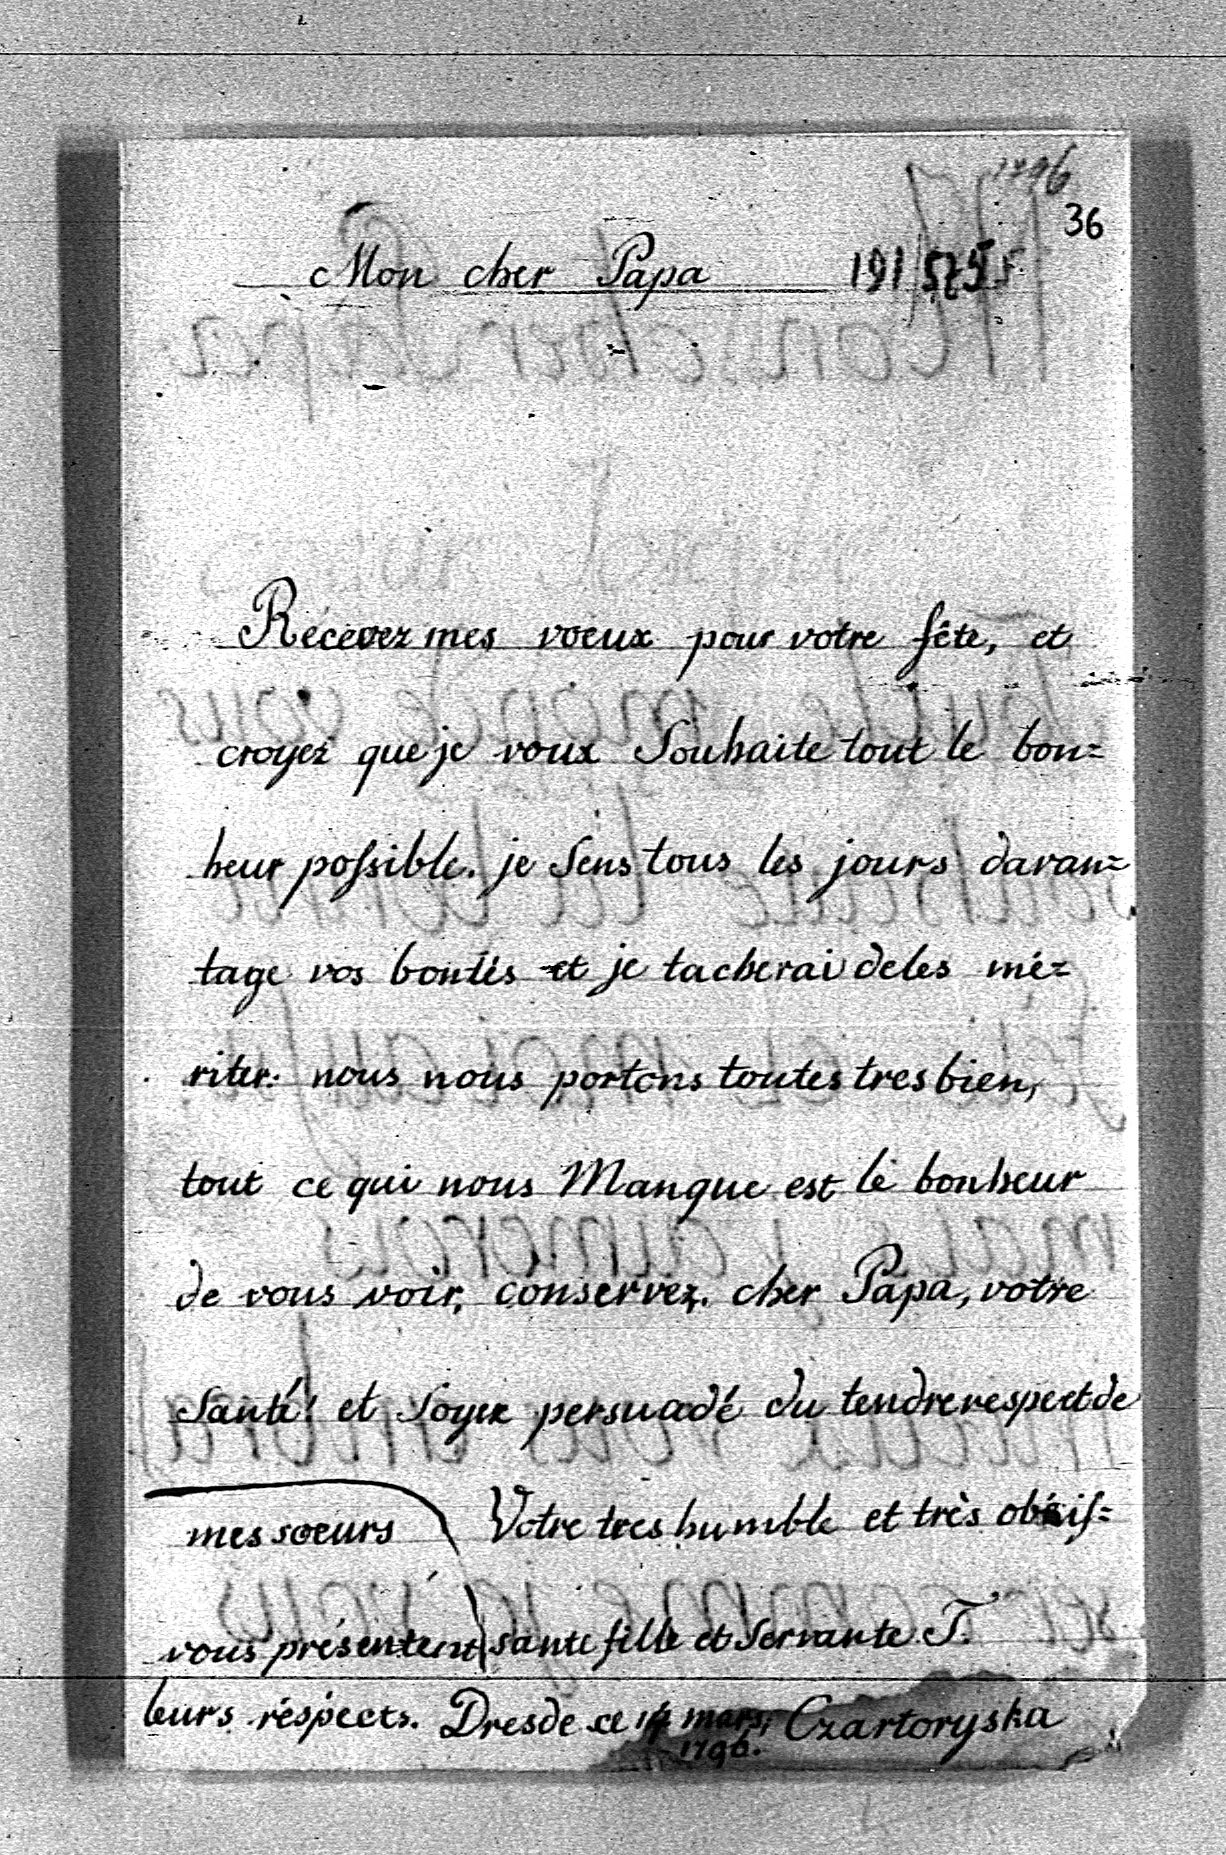 1796
36
Mon cher Papa
Récevez mes voeux pour votre fête, et
croyez que je voux Souhaite tout le bon=
heur possible. je Sens tous les jours davan=
tage vos bontés et je tacherai deles mé=
riter. nous nous portons toutes tres bien,
tout ce qui nous Manque est le bonheur
de vous voir, conservez, cher Papa, votre
Santé! et Soyez persuadé du tendre respect de
Votre tres humble et très obéis=
sante fille et Servante T.
Czartoryska
mes soeurs
vous présentent
leurs réspects. Dresde ce 14 mars,
1796.